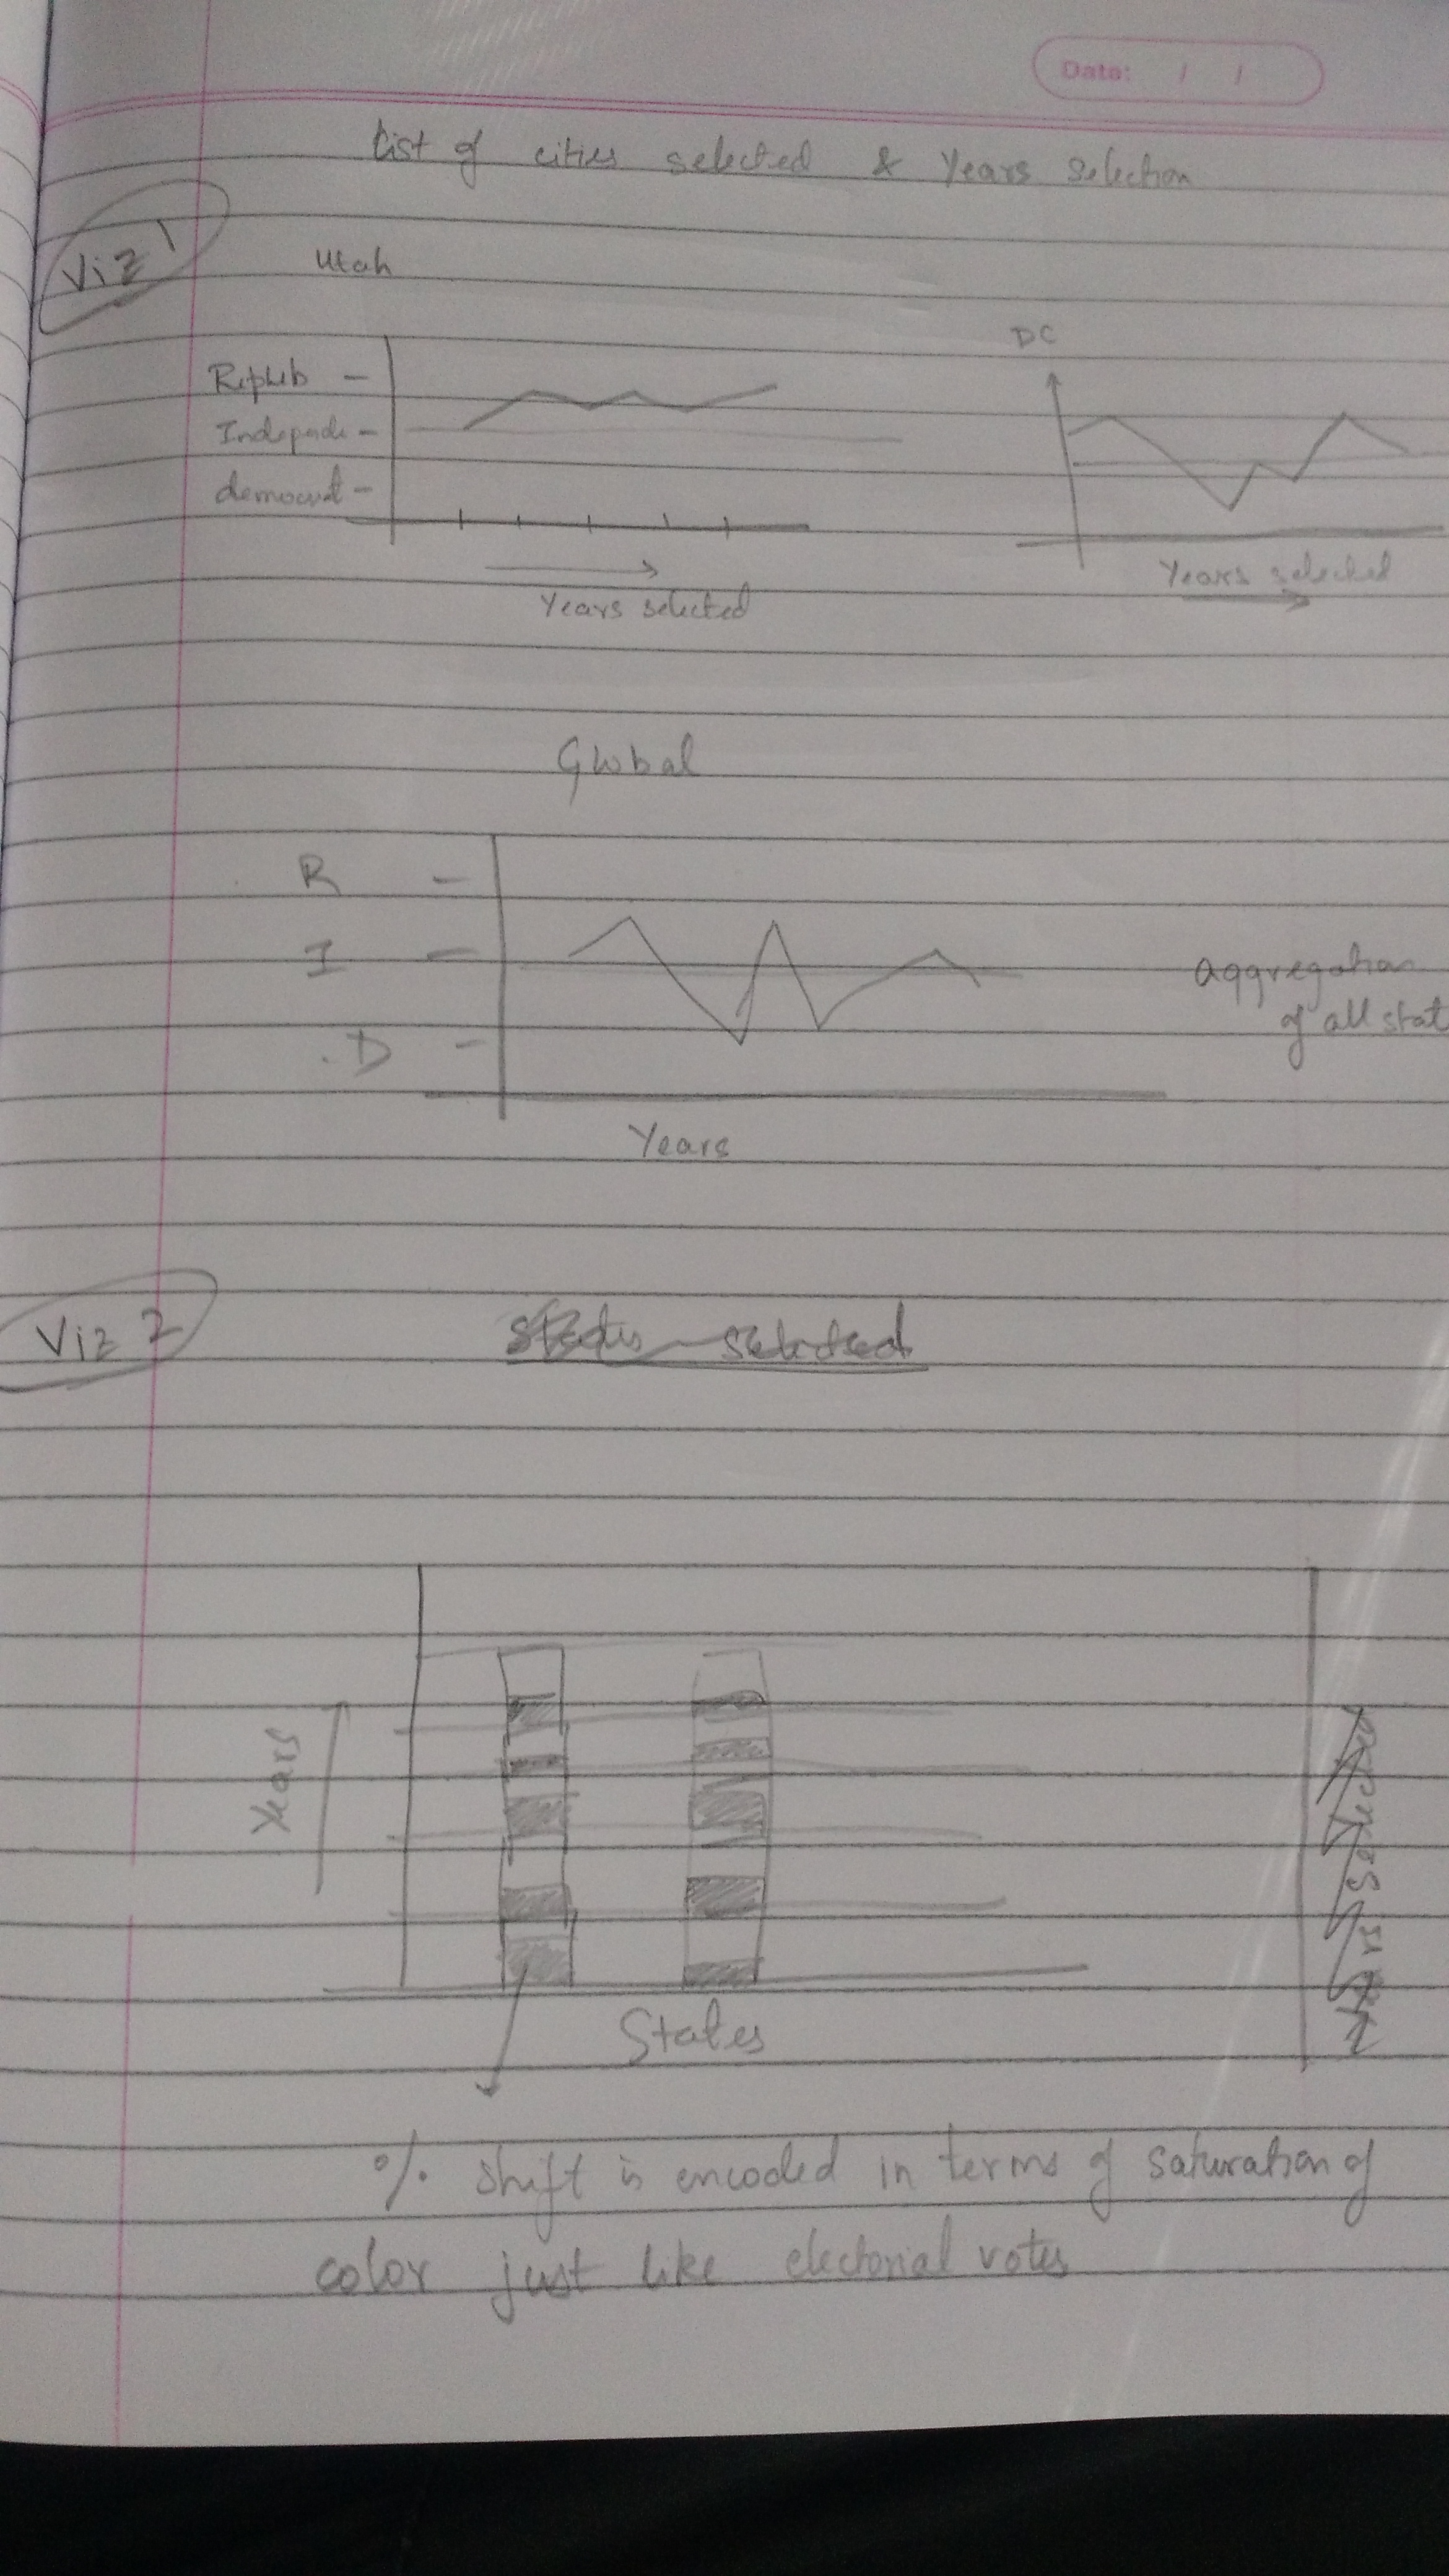 Date: / /
List of cities selected & Years selection
Viz 1
Utah
DC
Repub -
Indepede -
democrat -
Years selected
Years selected
Global
R -
I -
D -
aggregation
of all stat
Years
Viz 2
States selected
Years
States
% shift is encoded in terms of saturation of
color just like electorial votes